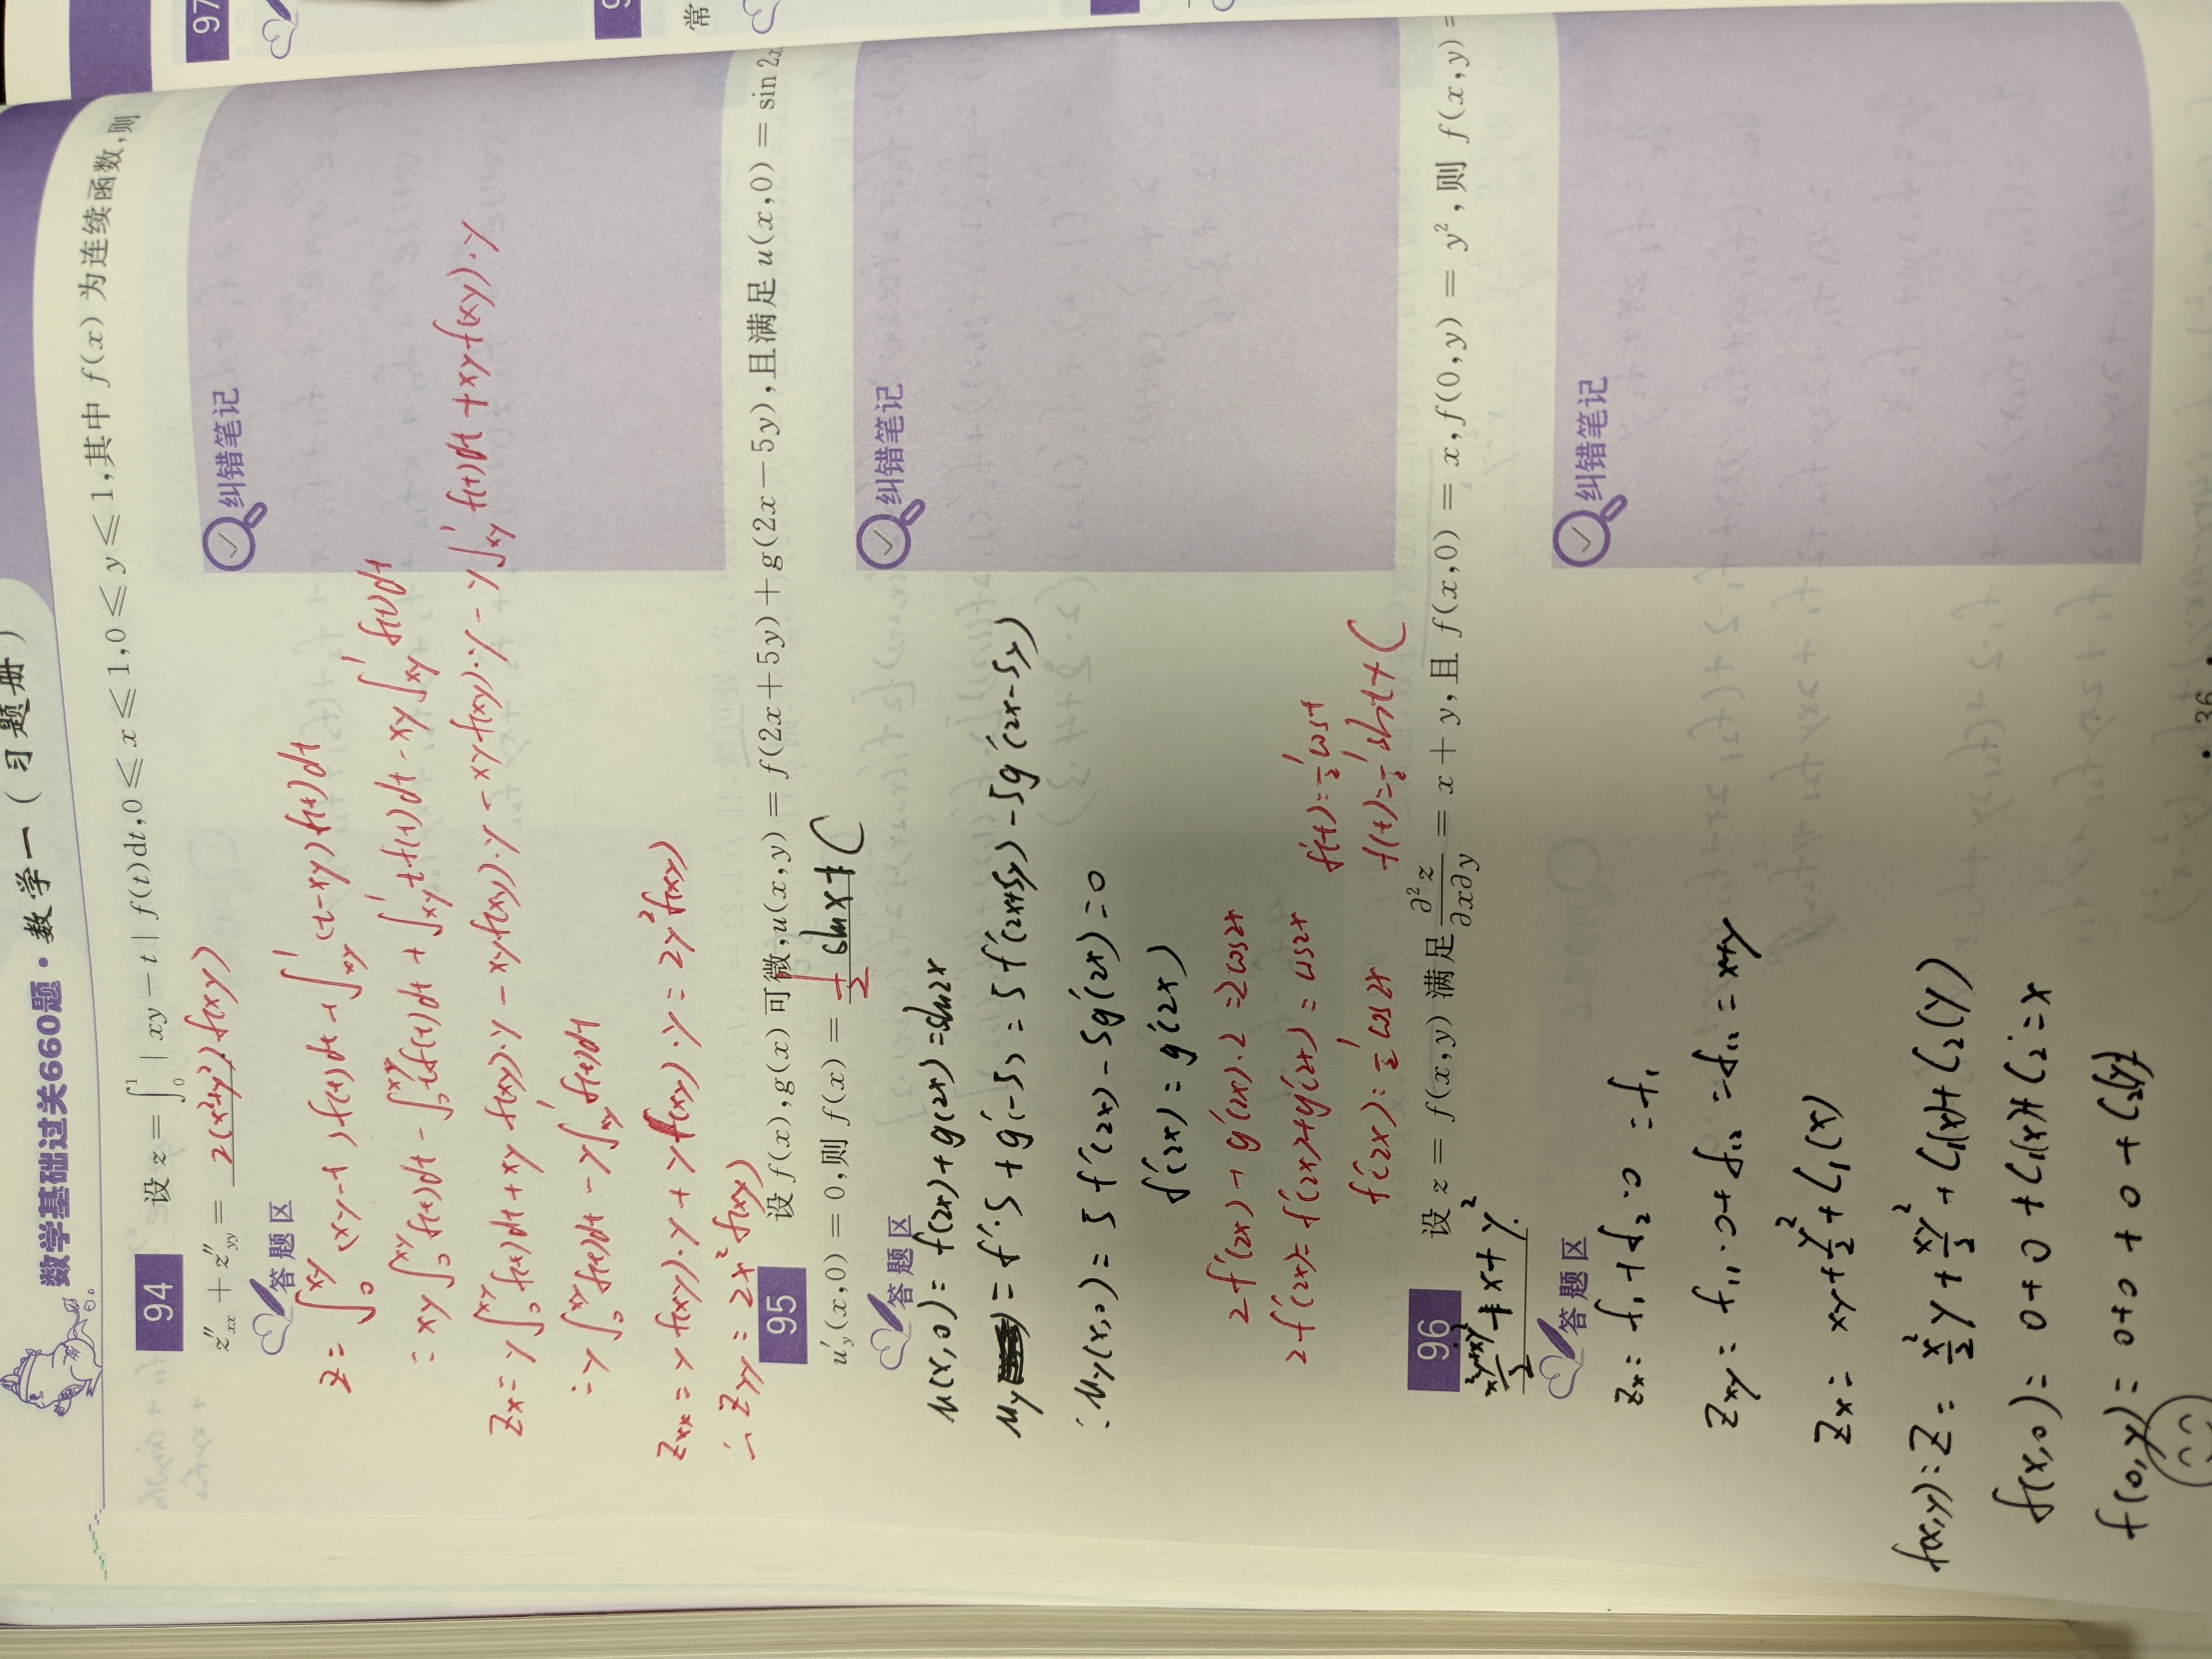 数学基础过关660题·数学一(习题册)
94 设 z = ∫₀¹ | xy − t | f(t)dt, 0 ⩽ x ⩽ 1, 0 ⩽ y ⩽ 1, 其中 f(x) 为连续函数, 则
z″ₓₓ + z″ᵧᵧ = 2(x²+y²)f(xy)
答题区
纠错笔记
z = ∫₀^{xy} (xy−t)f(t)dt + ∫_{xy}^1 (t−xy)f(t)dt
= xy∫₀^{xy} f(t)dt − ∫₀^{xy} tf(t)dt + ∫_{xy}^1 tf(t)dt − xy∫_{xy}^1 f(t)dt
Zx = y∫₀^{xy} f(t)dt + xy f(xy)·y − xyf(xy)·y − xyf(xy)·y − y∫_{xy}^1 f(t)dt + xyf(xy)·y
= y∫₀^{xy} f(t)dt − y∫_{xy}^1 f(t)dt
Zxx = y f(xy)·y + y f(xy)·y = 2y²f(xy)
∴ Zyy = 2x²f(xy)
95 设 f(x), g(x) 可微, u(x,y) = f(2x+5y) + g(2x−5y), 且满足 u(x,0) = sin 2x
u′ᵧ(x,0) = 0, 则 f(x) = ½ sinx + C
答题区
纠错笔记
u(x,0) = f(2x)+g(2x) = sin2x
uy = f′·5 + g′(−5) = 5f′(2x+5y) − 5g′(2x−5y)
∴ uy(x,0) = 5f′(2x) − 5g′(2x) = 0
f′(2x) = g′(2x)
2f′(2x) + g′(2x)·2 = 2cos2x
2f′(2x) = f′(2x)+g′(2x) = cos2x
f′(2x) = ½cos2x
f′(t) = ½cost
f(t) = ½sint + C
96 设 z = f(x,y) 满足 ∂²z/∂x∂y = x + y, 且 f(x,0) = x, f(0,y) = y², 则 f(x,y) =
(x²y+xy²)/2 + x + y².
答题区
纠错笔记
Zx = f₁ + f₂·0 = f₁
Zxy = f₁₁·0 + f₁₂ = f₁₂ = x+y
Zx = xy + y²/2 + C₁(x)
f(x,y) = Z = x²/2 y + xy²/2 + C₁(x) + C₂(y)
f(x,0) = 0 + 0 + C₁(x) + C₂ = x
f(0,y) = 0 + 0 + 0 + C₂(y)
· 36 ·
97
常